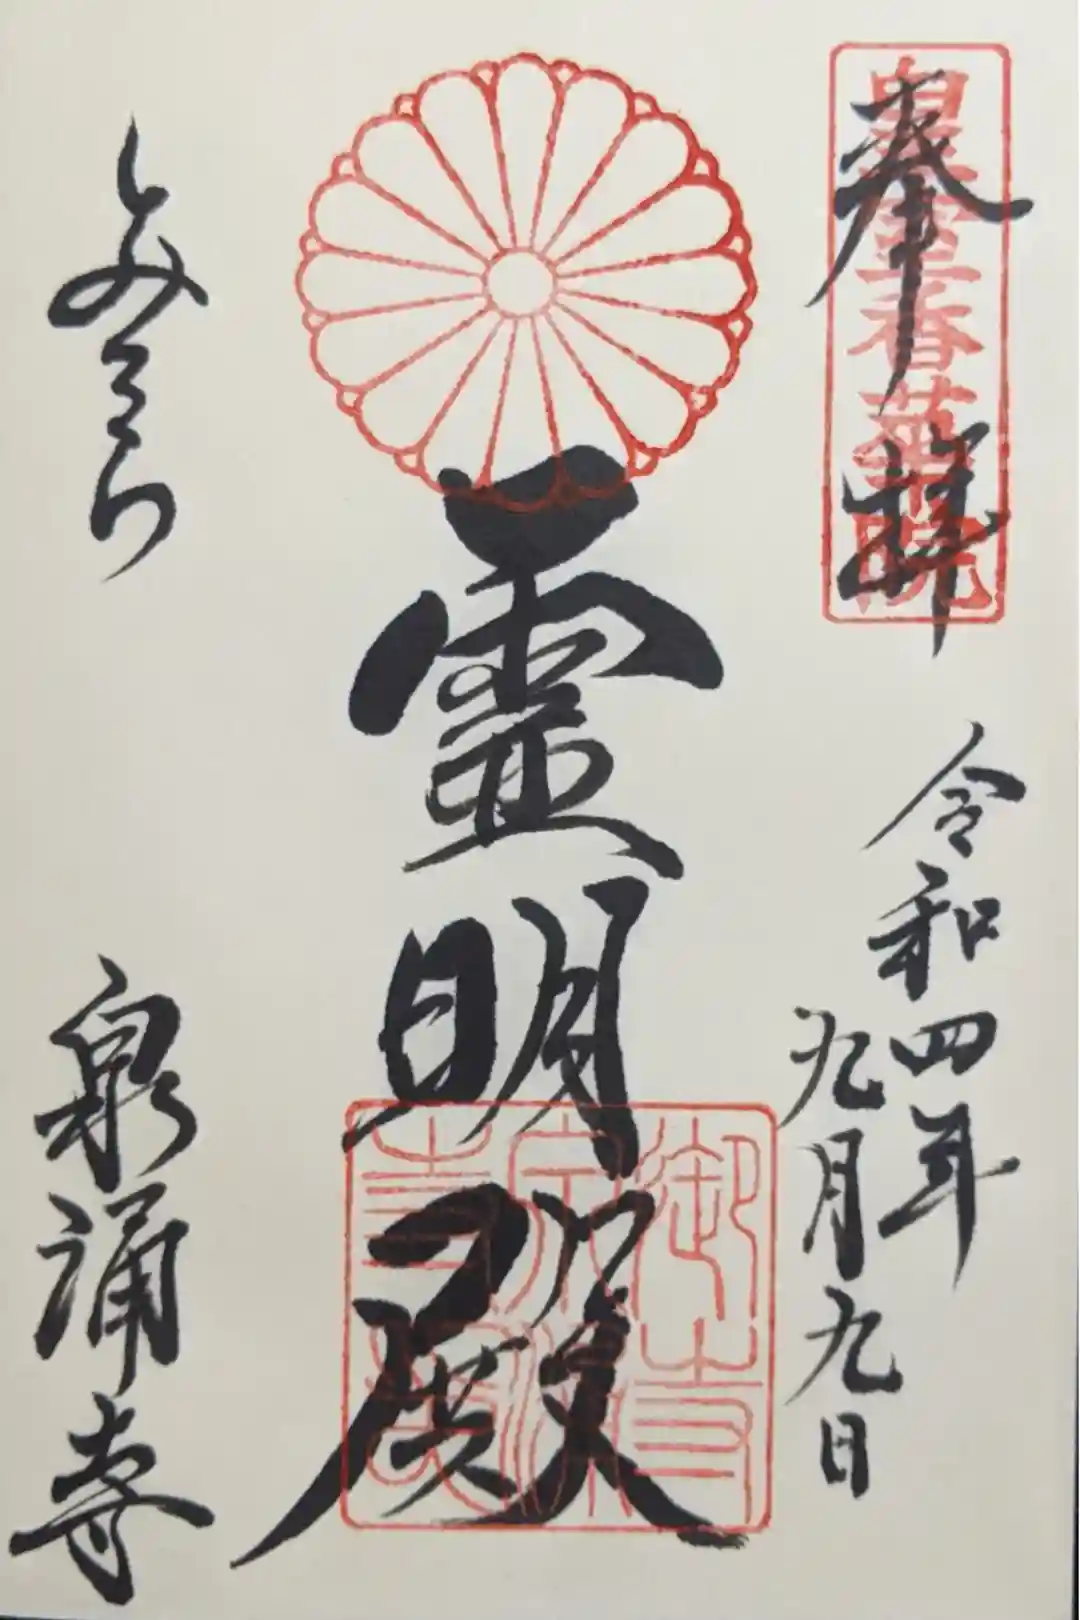 皇室香華院
奉拝
令和四年
九月九日
霊明殿
御寺
泉涌
泉涌寺